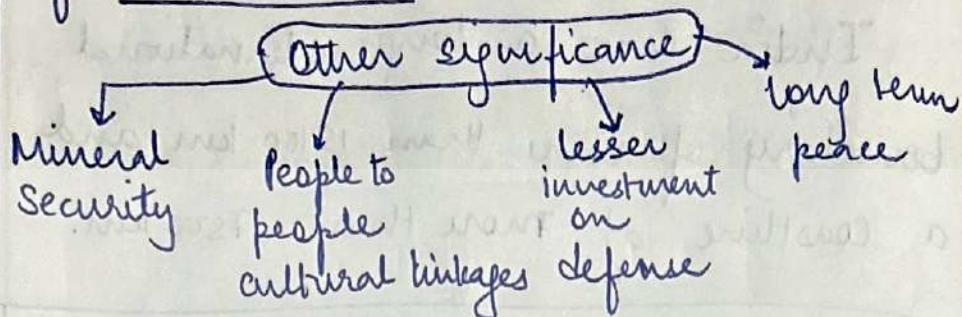 Other significance
Mineral
Security
People to
people
cultural linkages
lesser
investment
on
defense
long term
peace